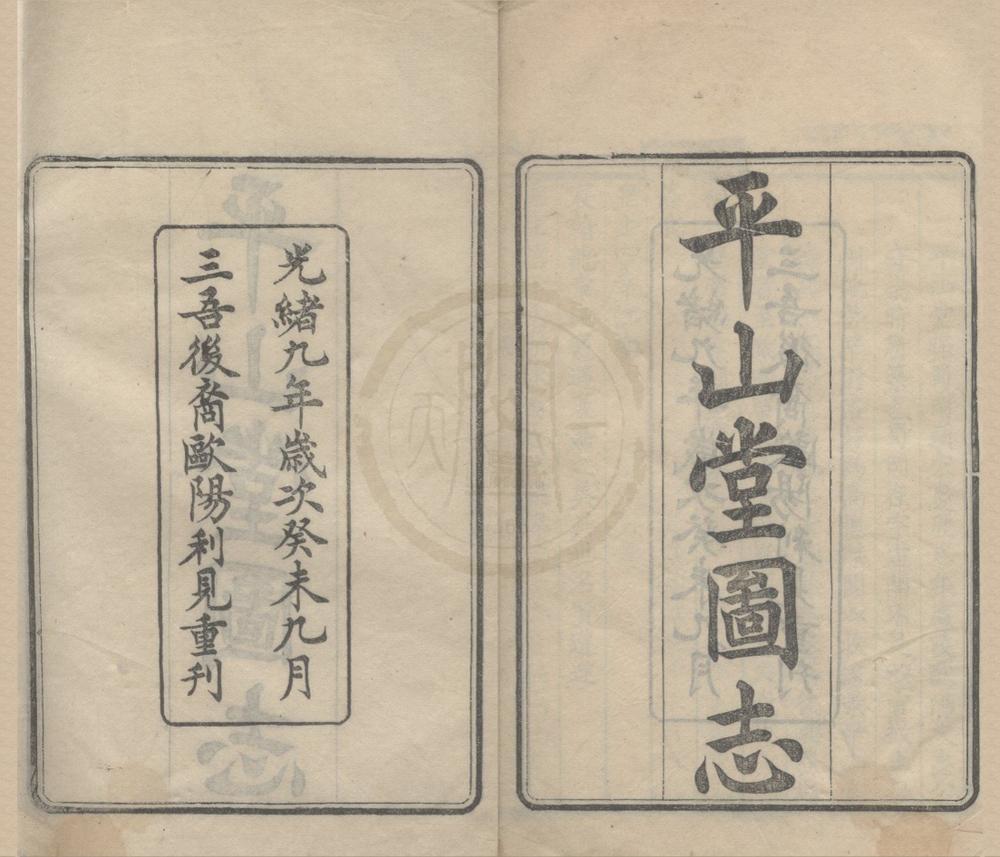 平山堂圖志
光緒九年歲次癸未九月
三吾後裔歐陽利見重刋